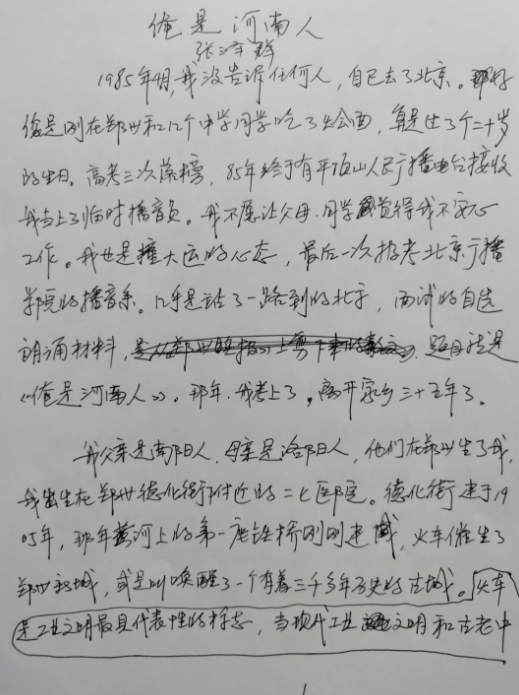 俺是河南人
张泽群
1985年4月,我没告诉任何人,自己去了北京。那时
俺是刚在郑州和几个中学同学吃了火会面,算是过了个二十岁
的生日。高考三次落榜,85年终于有平顶山人民广播电台接收
我当上了临时播音员。我不愿让父母、同学觉得我不安心
工作。我也是撞大运的心态,最后一次报考北京广播
学院的播音系。几乎是站了一路到的北京,面试的自选
朗诵材料,是从《郑州晚报》上剪下来的散文,题目就是
《俺是河南人》。那年,我考上了。离开家乡三十五年了。
我父亲是南阳人,母亲是洛阳人,他们在郑州生了我,
我出生在郑州德化街附近的二七医院。德化街建于19
05年,那年黄河上的第一座铁桥刚刚建成,火车催生了
郑州新城,或是叫唤醒了一个有着三千多年历史的古城。火车
是工业文明最具代表性的标志,当现代工业文明和古老中